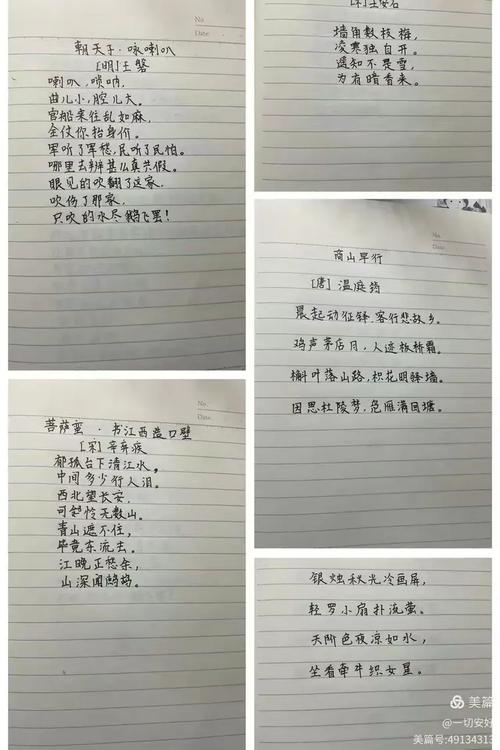 No.
Date
朝天子·咏喇叭
[明]王磐
喇叭,唢呐,
曲儿小,腔儿大。
官船来往乱如麻,
全仗你抬身价。
军听了军愁,民听了民怕。
哪里去辨甚么真共假。
眼见的吹翻了这家,
吹伤了那家,
只吹的水尽鹅飞罢!
[宋]王安石
墙角数枝梅,
凌寒独自开。
遥知不是雪,
为有暗香来。
No.
Date
商山早行
[唐]温庭筠
晨起动征铎,客行悲故乡。
鸡声茅店月,人迹板桥霜。
槲叶落山路,枳花明驿墙。
因思杜陵梦,凫雁满回塘。
No.
Date
菩萨蛮·书江西造口壁
[宋]辛弃疾
郁孤台下清江水,
中间多少行人泪。
西北望长安,
可怜无数山。
青山遮不住,
毕竟东流去。
江晚正愁余,
山深闻鹧鸪。
银烛秋光冷画屏,
轻罗小扇扑流萤。
天阶夜色凉如水,
坐看牵牛织女星。
美篇
@一切安好
美篇号:49134313